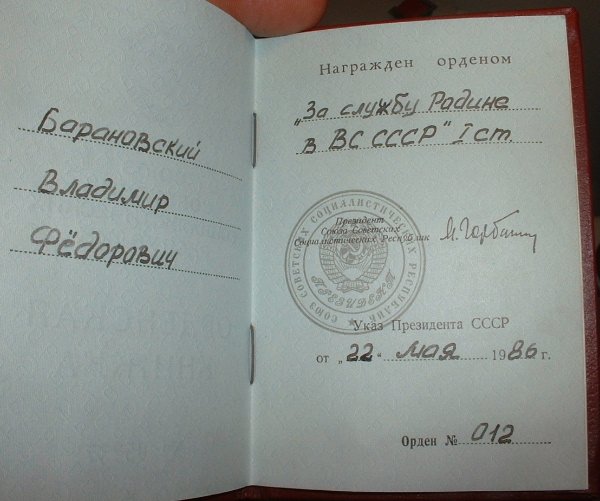 Барановский
Владимир
Фёдорович
Награжден орденом
„За службу Радине
в ВС СССР" I ст.
СОЮЗ СОВЕТСКИХ СОЦИАЛИСТИЧЕСКИХ РЕСПУБЛИК
Президент
Союза Советских
Социалистических Республик
М. Горбачев
ПРЕЗИДЕНТ
Указ Президента СССР
от „22" мая 1986 г.
Орден № 012